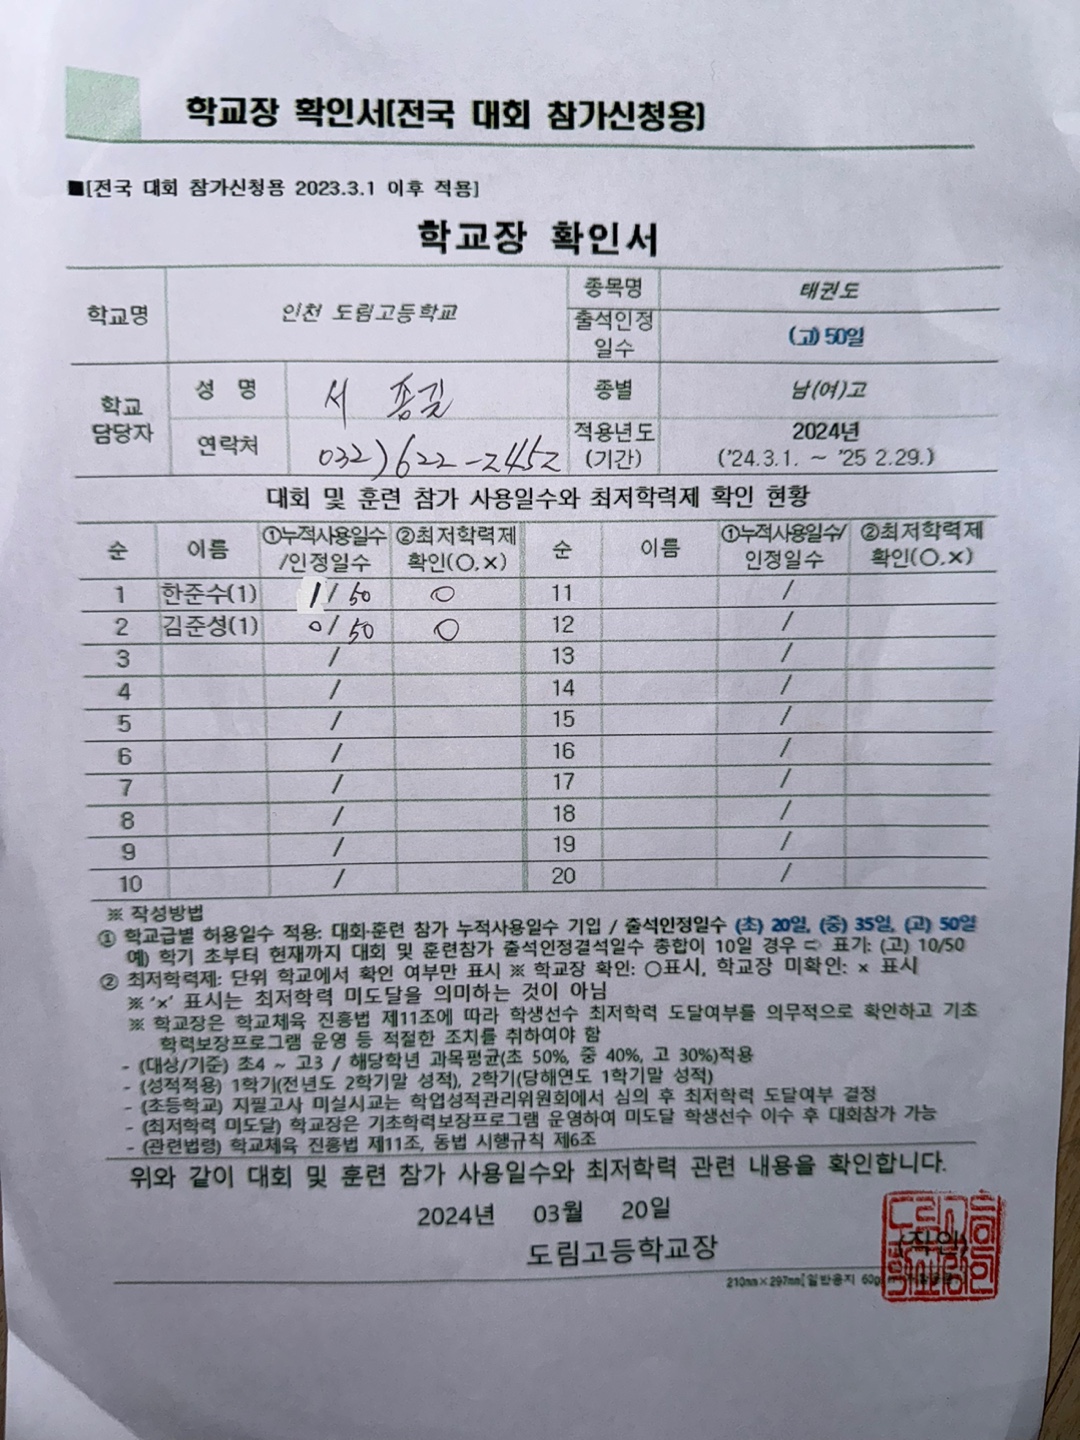 학교장 확인서(전국 대회 참가신청용)
■[전국 대회 참가신청용 2023.3.1 이후 적용]
학교장 확인서
학교명 인천 도림고등학교 종목명 태권도
출석인정 일수 (고) 50일
학교 담당자 성 명 서 종길 종별 남(여)고
연락처 032)622-2452 적용년도 (기간) 2024년 ('24.3.1. ~ '25 2.29.)
대회 및 훈련 참가 사용일수와 최저학력제 확인 현황
순 이름 ①누적사용일수/인정일수 ②최저학력제 확인(○,×) 순 이름 ①누적사용일수/인정일수 ②최저학력제 확인(○,×)
1 한준수(1) 1/50 ○ 11 /
2 김준성(1) 0/50 ○ 12 /
3 / 13 /
4 / 14 /
5 / 15 /
6 / 16 /
7 / 17 /
8 / 18 /
9 / 19 /
10 / 20 /
※ 작성방법
① 학교급별 허용일수 적용: 대회·훈련 참가 누적사용일수 기입 / 출석인정일수 (초) 20일, (중) 35일, (고) 50일
예) 학기 초부터 현재까지 대회 및 훈련참가 출석인정결석일수 총합이 10일 경우 ⇨ 표기: (고) 10/50
② 최저학력제: 단위 학교에서 확인 여부만 표시 ※ 학교장 확인: ○표시, 학교장 미확인: × 표시
※ '×' 표시는 최저학력 미도달을 의미하는 것이 아님
※ 학교장은 학교체육 진흥법 제11조에 따라 학생선수 최저학력 도달여부를 의무적으로 확인하고 기초
학력보장프로그램 운영 등 적절한 조치를 취하여야 함
- (대상/기준) 초4 ~ 고3 / 해당학년 과목평균(초 50%, 중 40%, 고 30%)적용
- (성적적용) 1학기(전년도 2학기말 성적), 2학기(당해연도 1학기말 성적)
- (초등학교) 지필고사 미실시교는 학업성적관리위원회에서 심의 후 최저학력 도달여부 결정
- (최저학력 미도달) 학교장은 기초학력보장프로그램 운영하여 미도달 학생선수 이수 후 대회참가 가능
- (관련법령) 학교체육 진흥법 제11조, 동법 시행규칙 제6조
위와 같이 대회 및 훈련 참가 사용일수와 최저학력 관련 내용을 확인합니다.
2024년 03월 20일
도림고등학교장 (직인)
210mm×297mm[일반용지 60g